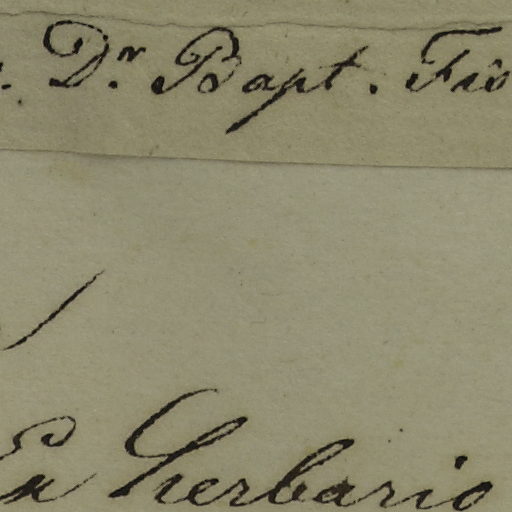 . Dr. Bapt. Fio
Ex Herbario